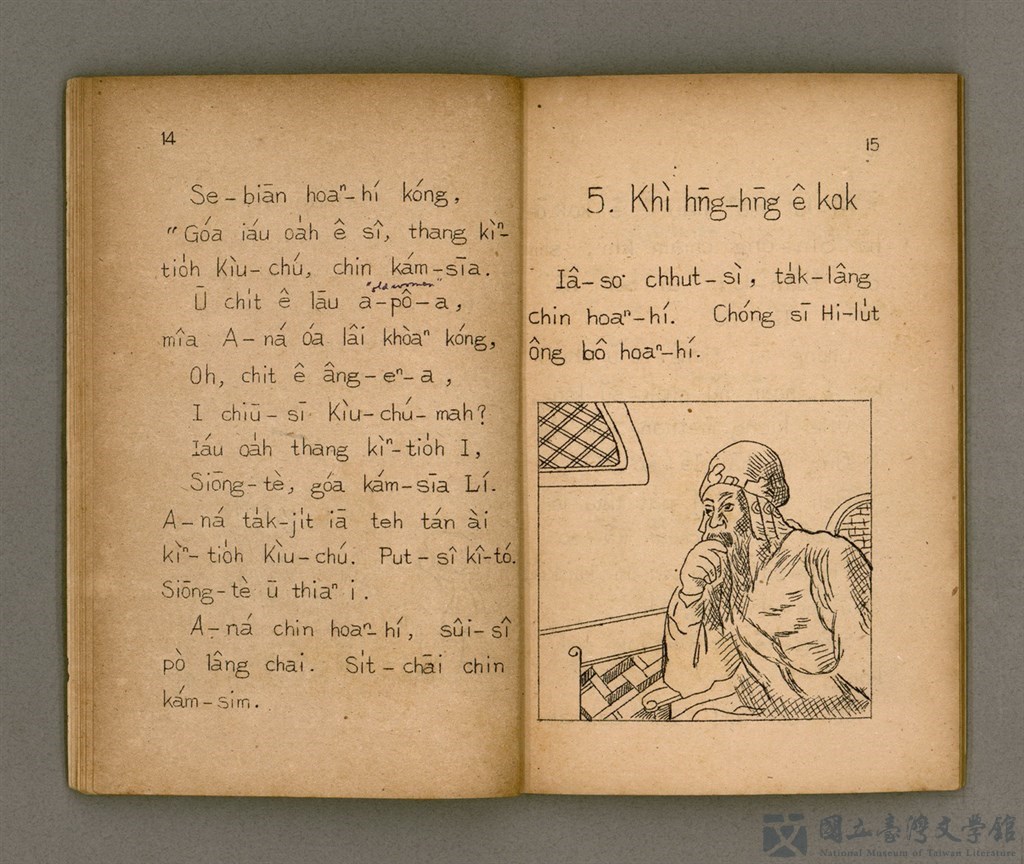 14
Se-biān hoaⁿ-hí kóng,
"Góa iáu oa̍h ê sî, thang kìⁿ-
tio̍h Kìu-chú, chin kám-sīa.
"old women"
Ū chi̍t ê lāu a-pô-a,
mîa A-ná óa lâi khòaⁿ kóng,
Oh, chit ê âng-eⁿ-a,
I chiū-sī Kìu-chú-mah?
Iáu oa̍h thang kìⁿ-tio̍h I,
Siōng-tè, góa kám-sīa Lí.
A-ná ta̍k-ji̍t iā teh tán ài
kìⁿ-tio̍h Kìu-chú. Put-sî kî-tó.
Siōng-tè ū thiaⁿ i.
A-ná chin hoaⁿ-hí, sûi-sî
pò lâng chai. Si̍t-chāi chin
kám-sim.
15
5. Khì hn̄g-hn̄g ê kok
Iâ-so͘ chhut-sì, ta̍k-lâng
chin hoaⁿ-hí. Chóng sī Hi-lu̍t
ông bô hoaⁿ-hí.
國立臺灣文学館
National Museum of Taiwan Literature